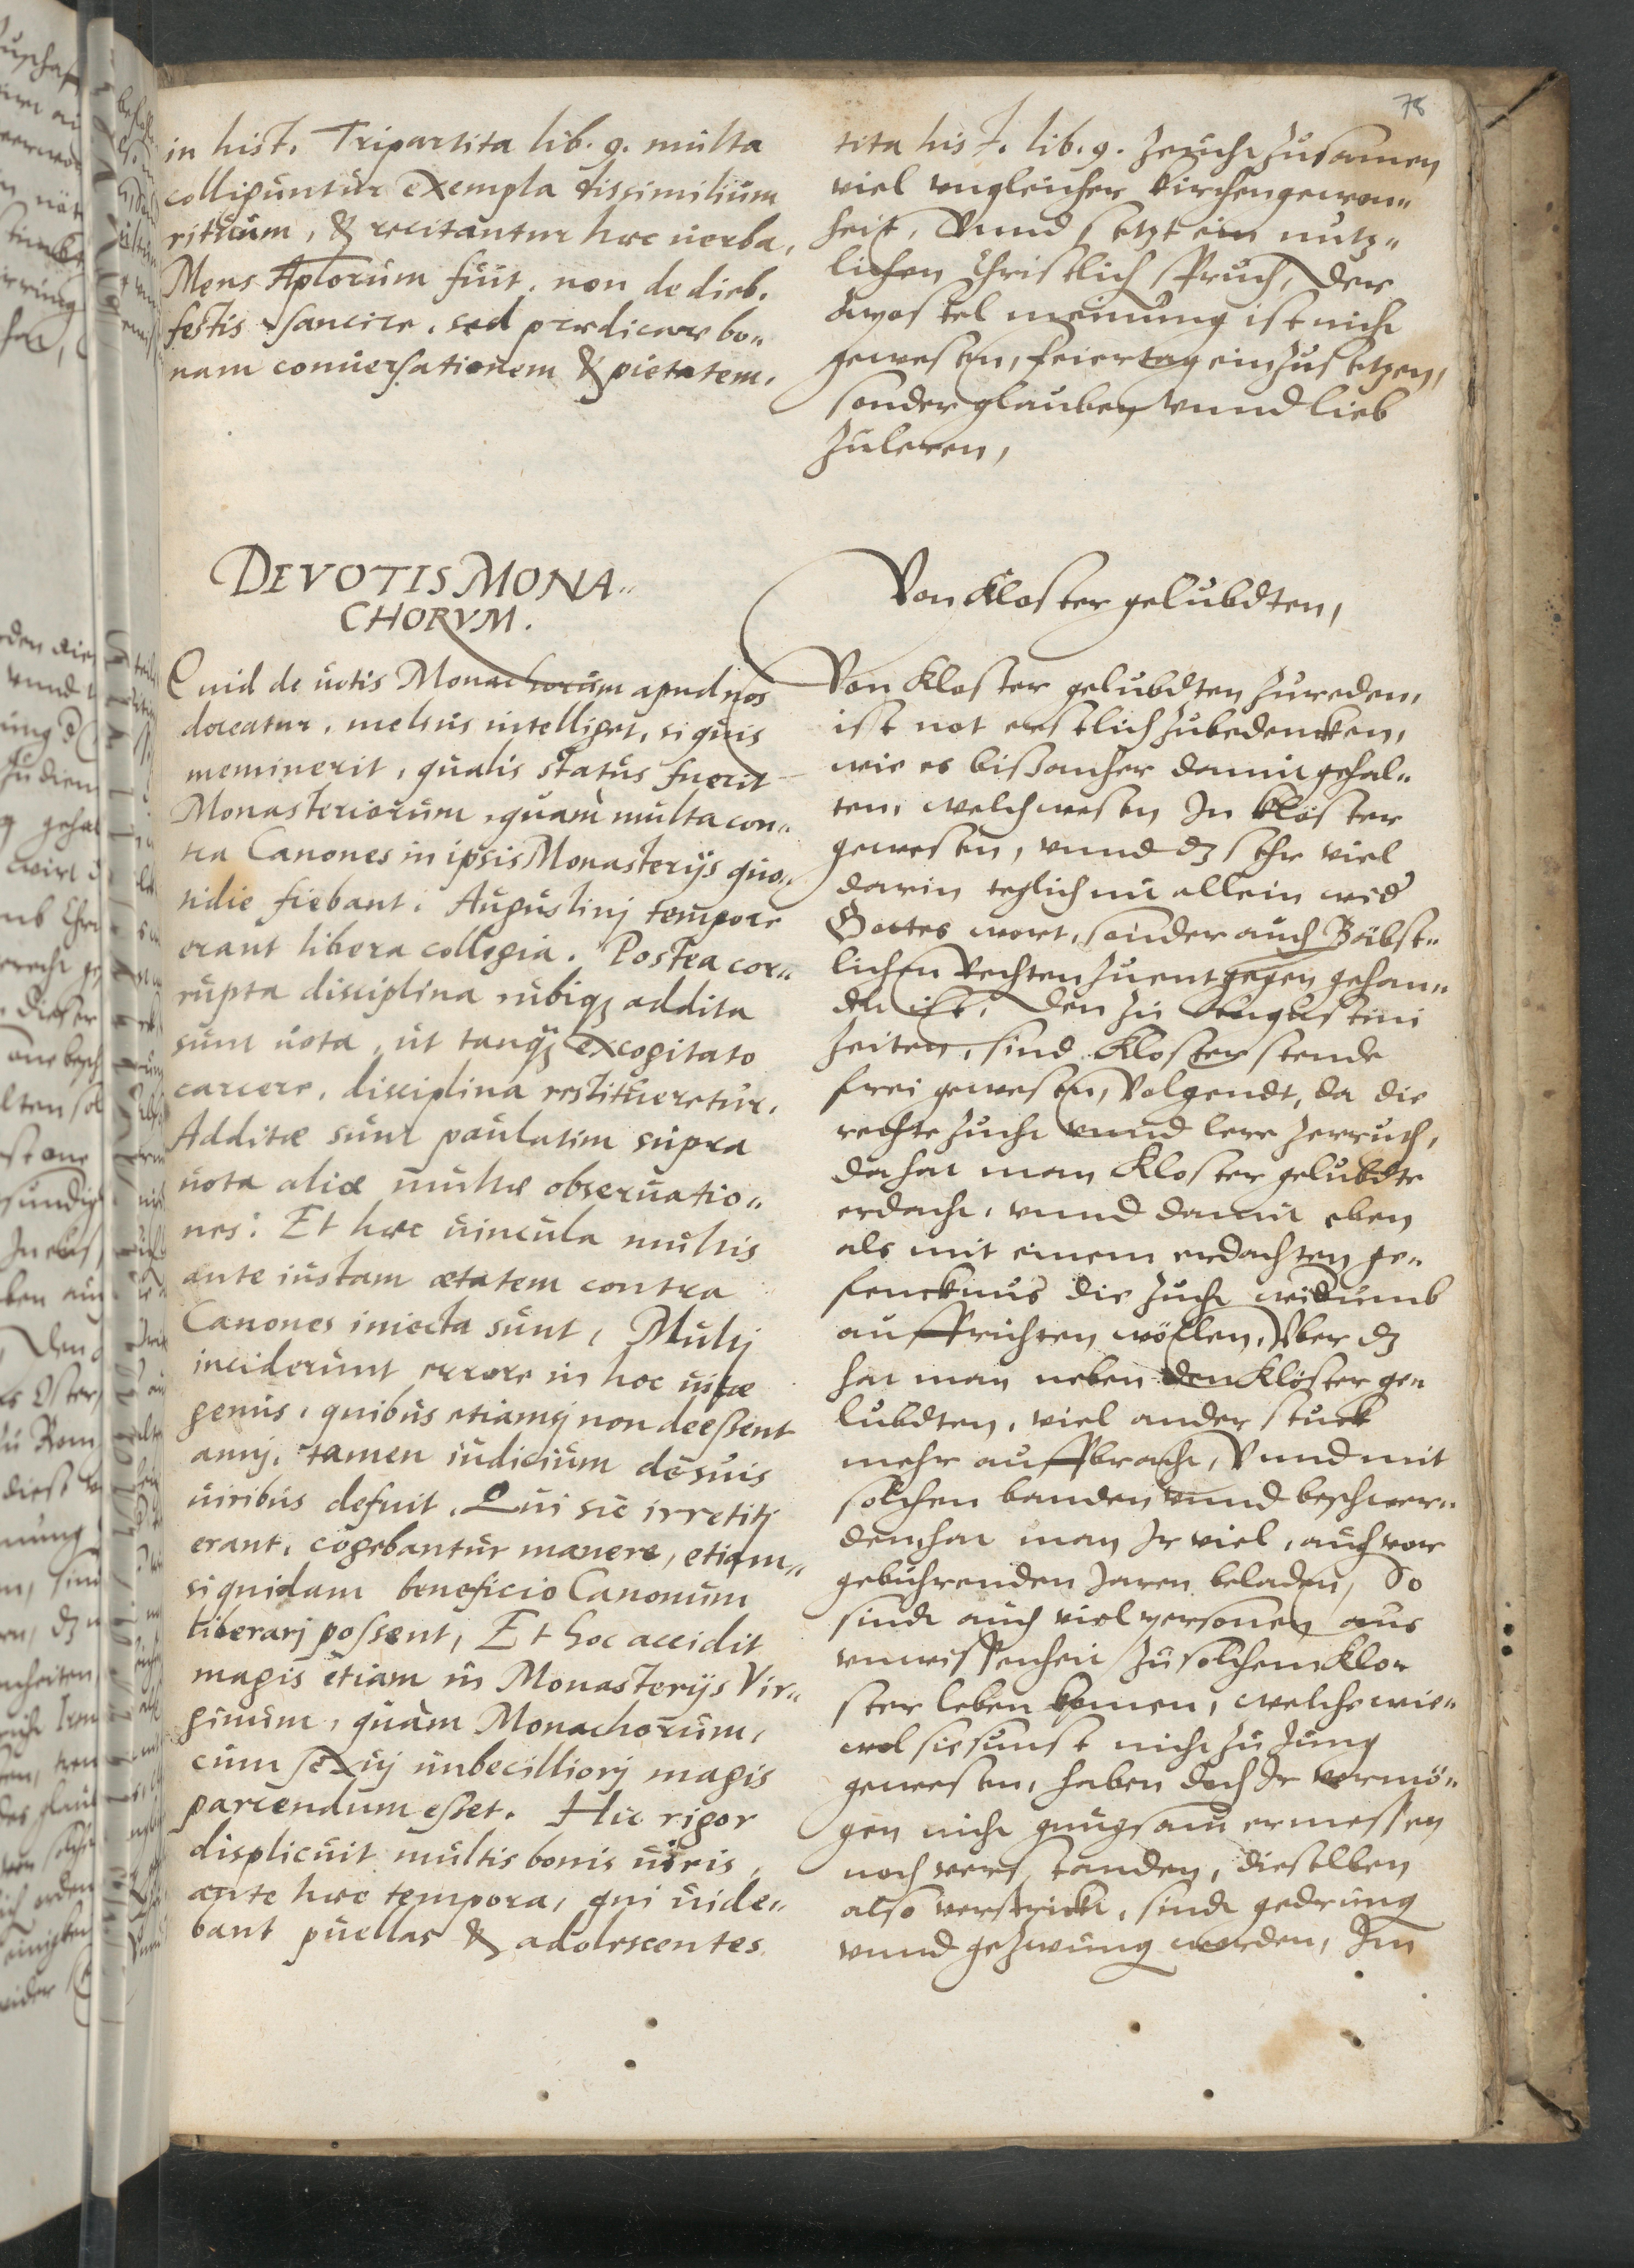 78
in hist. Tripartita lib. 9. multa
colliguntur exempla dissimilium
rituum, & recitantur hæc uerba,
Mens Aplorum fuit, non de dieb.
festis sancire, sed prædicare bo„
nam conuersationem & pietatem.
DE VOTIS MONA„
CHORVM.
Quid de uotis Monachorum apud nos
doceatur, melius intelliget, si quis
meminerit, qualis status fuerit
Monasteriorum, quam multa con„
tra Canones in ipsis Monasterijs quo„
tidie fiebant. Augustinj tempore
erant libera collegia. Postea cor„
rupta disciplina ubiqз addita
sunt uota, ut tanqз excogitato
carcere, disciplina restitueretur.
Additæ sunt paulatim supra
uota aliæ multæ obseruatio„
nes: Et hæc uincula multis
ante iustam ætatem contra
Canones iniecta sunt, Multj
inciderunt errore in hoc uitæ
genus, quibus etiamsj non deessent
annj, tamen iudicium de suis
uiribus defuit. Qui sic irretitj
erant, cogebantur manere, etiam„
si quidam beneficio Canonum
liberarj possent, Et hoc accidit
magis etiam in Monasterijs Vir„
ginum, quàm Monachorum,
cum sexuj imbecilliorj magis
parcendum esset. Hic rigor
displicuit multis bonis uiris,
ante hæc tempora, qui uide„
bant puellas & adolescentes
tita hist. lib. 9. Zeucht zusamen
viel vngleicher kirchengewon„
heit, Vnnd setzt ein nutz„
lichen Christlich spruch, Der
Apostel meinung ist nicht
gewesen, feiertag einzusetzen,
sonder glauben vnnd lieb
zuleren,
Von Kloster gelubdten,
Von Kloster gelubdten zureden,
ist not erstlich zubedencken,
wie es bißanher damit gehal„
ten, welch wesen In klöster
gewesen, vnnd dz sehr viel
darin teglich nit allein wid
Gottes wort, sonder auch Bäbst„
lichen Rechten zu entgegen gehan„
delt ist, Den zu Augustini
zeiten, sind Kloster stende
frei gewesen, Volgendt, da die
rechte zucht vnnd lere zerruth,
da hat man Kloster gelubdte
erdacht, vnnd damit eben
als mit einem erdachten ge„
fencknus die zucht widumb
auffrichten wöllen, Vber dz
hat man neben den Klöster ge„
lubdten, viel ander stuck
mehr auffbracht, Vnnd mit
solchen banden vnnd beschwer„
den hat man Ir viel, auch vor
gebuhrenden Jaren beladen, So
sindt auch viel personen aus
vnwissenheit zu solchem Klo„
ster leben komen, welche wie„
wol sie sunst nicht zu Jung
gewesen, haben doch Ir vermö„
gen nicht gnugsam ermessen
noch verstanden, dieselben
also verstrickt, sindt gedrung
vnnd gezwung worden, Inn